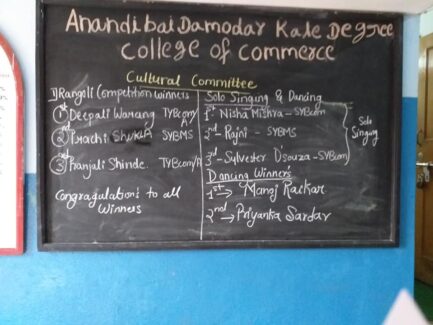 Anandibai Damodar Kale Degree
College of Commerce
Cultural Committee
1) Rangoli Competition winners
1st Deepali Warang TYBcom/
2nd Prachi Shukla SYBMS
3rd Pranjali Shinde. TYBcom/
Congragulations to all
Winners
Solo Singing & Dancing
1st Nisha Mishra - SYBcom
2nd - Rajni - SYBMS
3rd - Sylvester D'souza - SYBcom
Solo
Singing
Dancing Winners
1st → Manoj Raikar
2nd → Priyanka Sardar